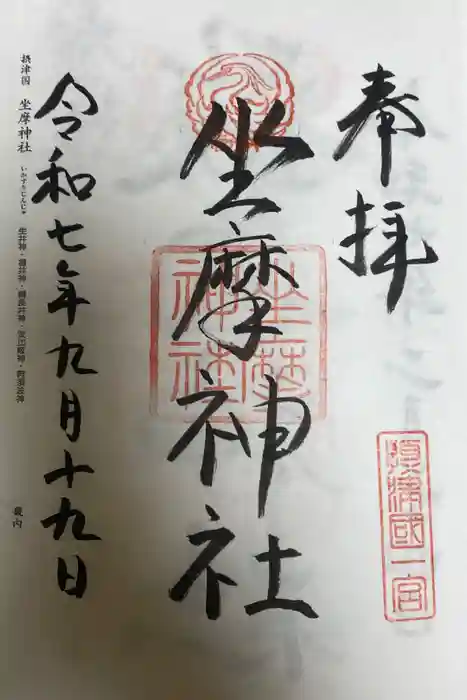 奉拝
摂津國一宮
坐摩神社
坐摩神社
令和七年九月十九日
摂津国 坐摩神社 いかすりじんじゃ 生井神・福井神・綱長井神・波比祇神・阿須波神